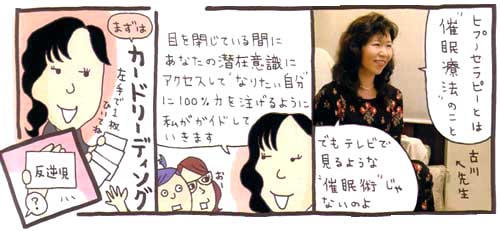 ヒプノセラピーとは
"催眠療法"のこと
古川先生
でもテレビで
見るような
"催眠術"じゃ
ないのよ
目を閉じている間に
あなたの潜在意識に
アクセスして"なりたい自分"
に100%力を注げるように
私がガイドして
いきます
おー
まずは
カードリーディング
左手で1枚
ひいてね
反逆児
?